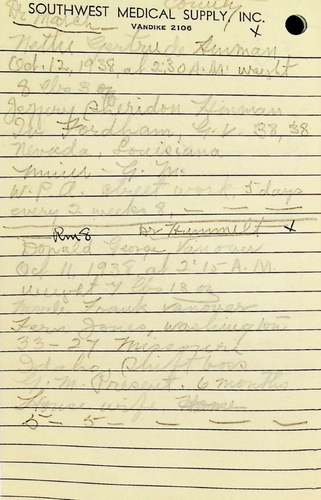 SOUTHWEST MEDICAL SUPPLY, INC.
VANDIKE 2106
Dr March
x
Nettie Gertrude Hinman
Oct. 12, 1938 at 2:30 A.M. weight
8 lbs 3 oz
Sheridon Hinman
Fordham, G. V. 38, 38
Nevada, Louisiana
Miner - G. M.
W.P.A. street work 5 days
every 2 weeks 8, - - -
Rm 8 Dr Hummelt x
Donald George Vanover
Oct 11, 1938, at 2:15 A.M.
weight 7 lbs 18 oz
Frank Vanover
Fern Jones, Washington
33-27 Missouri
Idaho, Shift boss
G. M. Present. 6 months
House wife Home
5 - 5 - - - - -